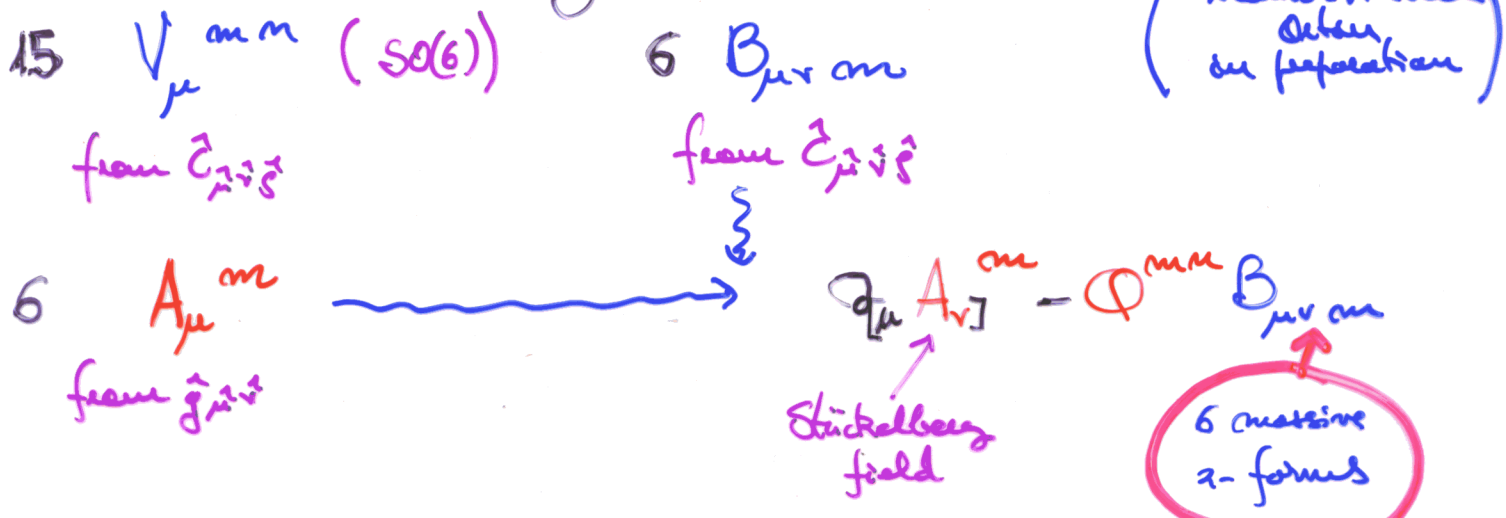 15 V_μ^{mn} (SO(6)) 6 B_{μν m}
( Octan
in preparation )
from Ĉ_{μ̂ν̂ρ̂} from Ĉ_{μ̂ν̂ρ̂}
6 A_μ^m ∂_{[μ} A_{ν]}^m - Q^{mn} B_{μν m}
from ĝ_{μ̂ν̂}
Stückelberg
field
6 massive
2-forms